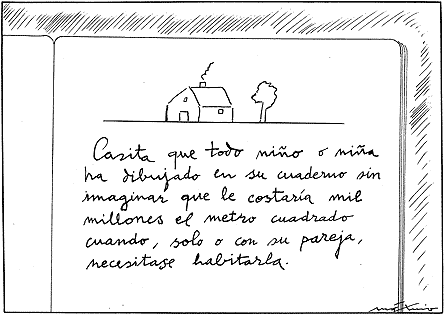 Casita que todo niño o niña
ha dibujado en su cuaderno sin
imaginar que le costaría mil
millones el metro cuadrado
cuando, solo o con su pareja,
necesitase habitarla.
máximo